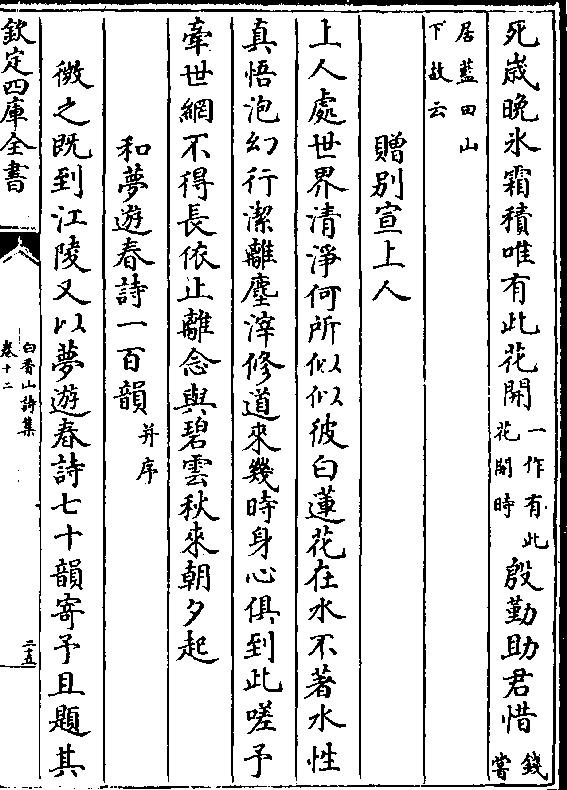 死歲晚氷霜積唯有此花開一作有此花開時殷勤助君惜錢嘗
居藍田山下故云
贈別宣上人
上人處世界清淨何所似似彼白蓮花在水不著水性
真悟泡幻行潔離塵滓修道來幾時身心俱到此嗟予
牽世網不得長依止離念與碧雲秋來朝夕起
和夢遊春詩一百韻并序
微之既到江陵又以夢遊春詩七十韻寄予且題其
欽定四庫全書
白香山詩集
卷十二
二五